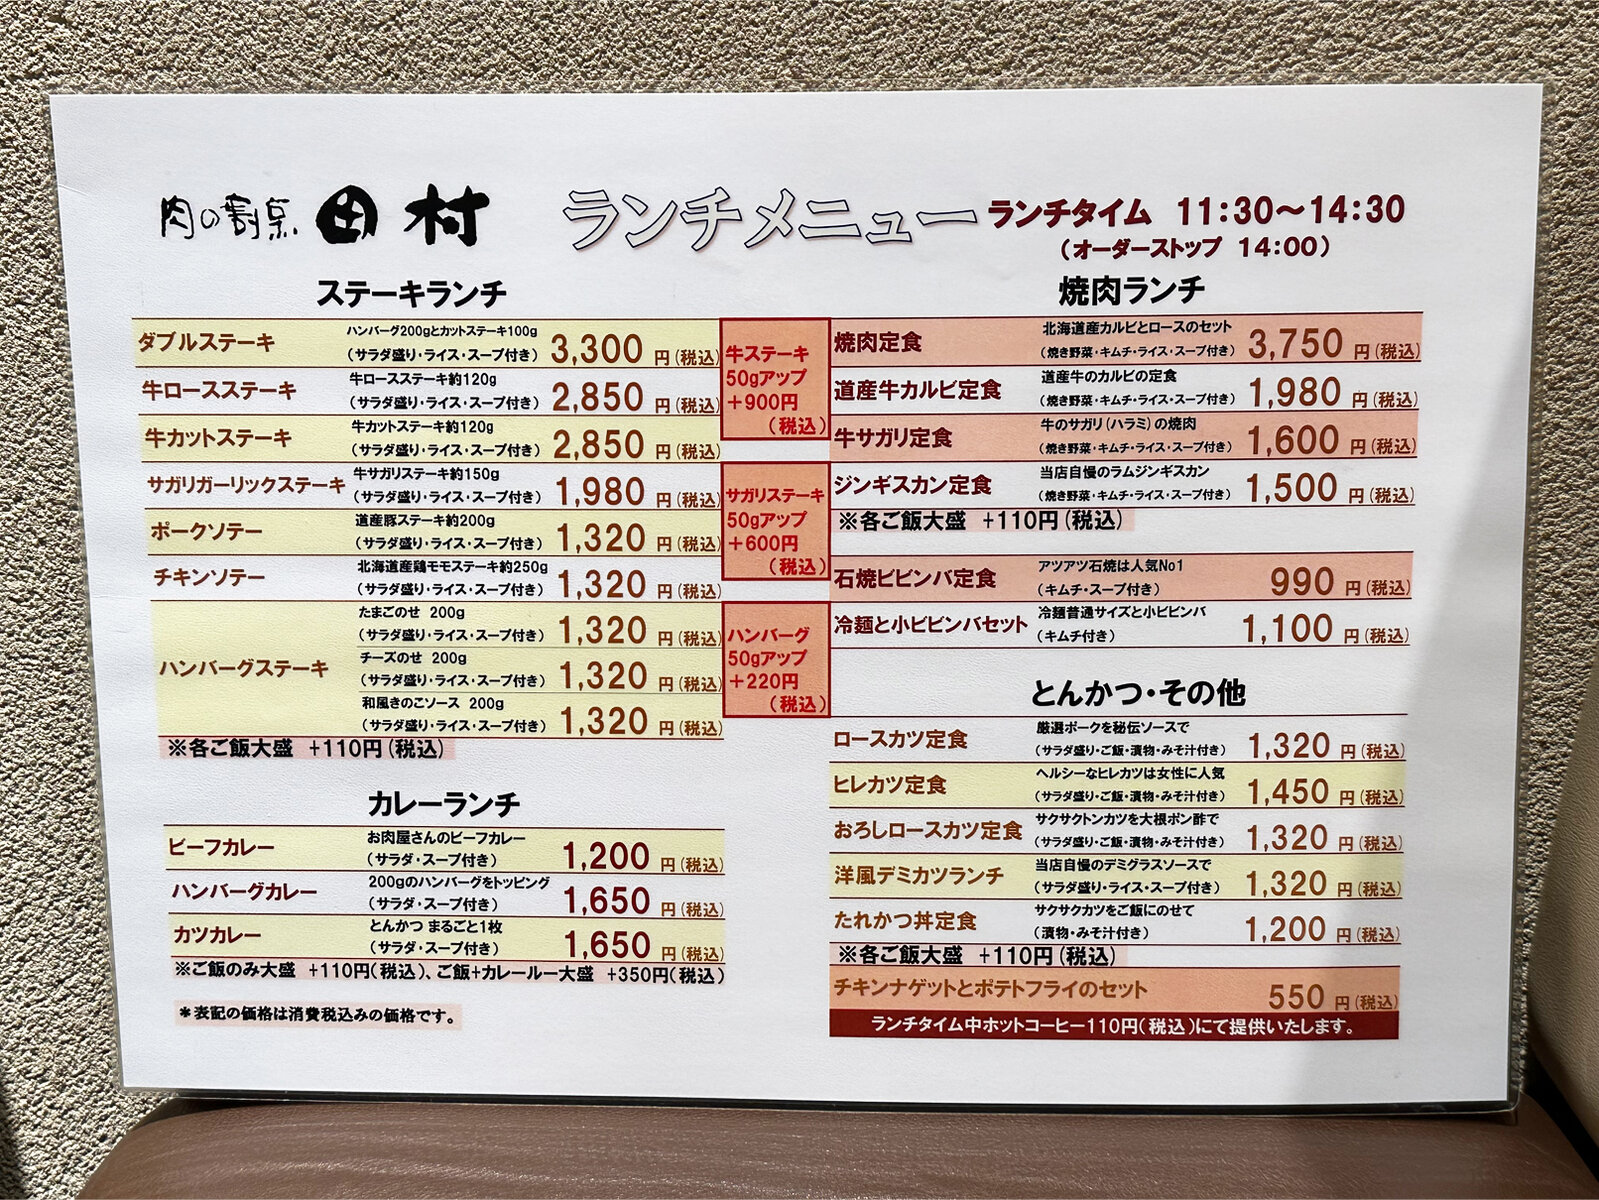 肉の割烹 田村
ランチメニュー
ランチタイム 11:30～14:30
(オーダーストップ 14:00)
ステーキランチ
ダブルステーキ ハンバーグ200gとカットステーキ100g
(サラダ盛り・ライス・スープ付き) 3,300 円(税込)
牛ロースステーキ 牛ロースステーキ約120g
(サラダ盛り・ライス・スープ付き) 2,850 円(税込)
牛カットステーキ 牛カットステーキ約120g
(サラダ盛り・ライス・スープ付き) 2,850 円(税込)
サガリガーリックステーキ 牛サガリステーキ約150g
(サラダ盛り・ライス・スープ付き) 1,980 円(税込)
ポークソテー 道産豚ステーキ約200g
(サラダ盛り・ライス・スープ付き) 1,320 円(税込)
チキンソテー 北海道産鶏モモステーキ約250g
(サラダ盛り・ライス・スープ付き) 1,320 円(税込)
ハンバーグステーキ
たまごのせ 200g
(サラダ盛り・ライス・スープ付き) 1,320 円(税込)
チーズのせ 200g
(サラダ盛り・ライス・スープ付き) 1,320 円(税込)
和風きのこソース 200g
(サラダ盛り・ライス・スープ付き) 1,320 円(税込)
※各ご飯大盛 +110円(税込)
牛ステーキ
50gアップ
+900円
(税込)
サガリステーキ
50gアップ
+600円
(税込)
ハンバーグ
50gアップ
+220円
(税込)
カレーランチ
ビーフカレー お肉屋さんのビーフカレー
(サラダ・スープ付き) 1,200 円(税込)
ハンバーグカレー 200gのハンバーグをトッピング
(サラダ・スープ付き) 1,650 円(税込)
カツカレー とんかつ まるごと1枚
(サラダ・スープ付き) 1,650 円(税込)
※ご飯のみ大盛 +110円(税込)、ご飯+カレールー大盛 +350円(税込)
＊表記の価格は消費税込みの価格です。
焼肉ランチ
焼肉定食 北海道産カルビとロースのセット
(焼き野菜・キムチ・ライス・スープ付) 3,750 円(税込)
道産牛カルビ定食 道産牛のカルビの定食
(焼き野菜・キムチ・ライス・スープ付) 1,980 円(税込)
牛サガリ定食 牛のサガリ(ハラミ)の焼肉
(焼き野菜・キムチ・ライス・スープ付) 1,600 円(税込)
ジンギスカン定食 当店自慢のラムジンギスカン
(焼き野菜・キムチ・ライス・スープ付) 1,500 円(税込)
※各ご飯大盛 +110円(税込)
石焼ビビンバ定食 アツアツ石焼は人気No1
(キムチ・スープ付) 990 円(税込)
冷麺と小ビビンバセット 冷麺普通サイズと小ビビンバ
(キムチ付き) 1,100 円(税込)
とんかつ・その他
ロースカツ定食 厳選ポークを秘伝ソースで
(サラダ盛り・ご飯・漬物・みそ汁付き) 1,320 円(税込)
ヒレカツ定食 ヘルシーなヒレカツは女性に人気
(サラダ盛り・ご飯・漬物・みそ汁付き) 1,450 円(税込)
おろしロースカツ定食 サクサクトンカツを大根ポン酢で
(サラダ盛り・ご飯・漬物・みそ汁付き) 1,320 円(税込)
洋風デミカツランチ 当店自慢のデミグラスソースで
(サラダ盛り・ライス・スープ付き) 1,320 円(税込)
たれかつ丼定食 サクサクカツをご飯にのせて
(漬物・みそ汁付き) 1,200 円(税込)
※各ご飯大盛 +110円(税込)
チキンナゲットとポテトフライのセット 550 円(税込)
ランチタイム中ホットコーヒー110円(税込)にて提供いたします。